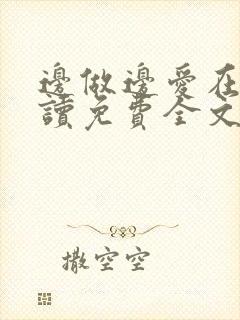 邊做邊愛在
讀免費全文
撒空空